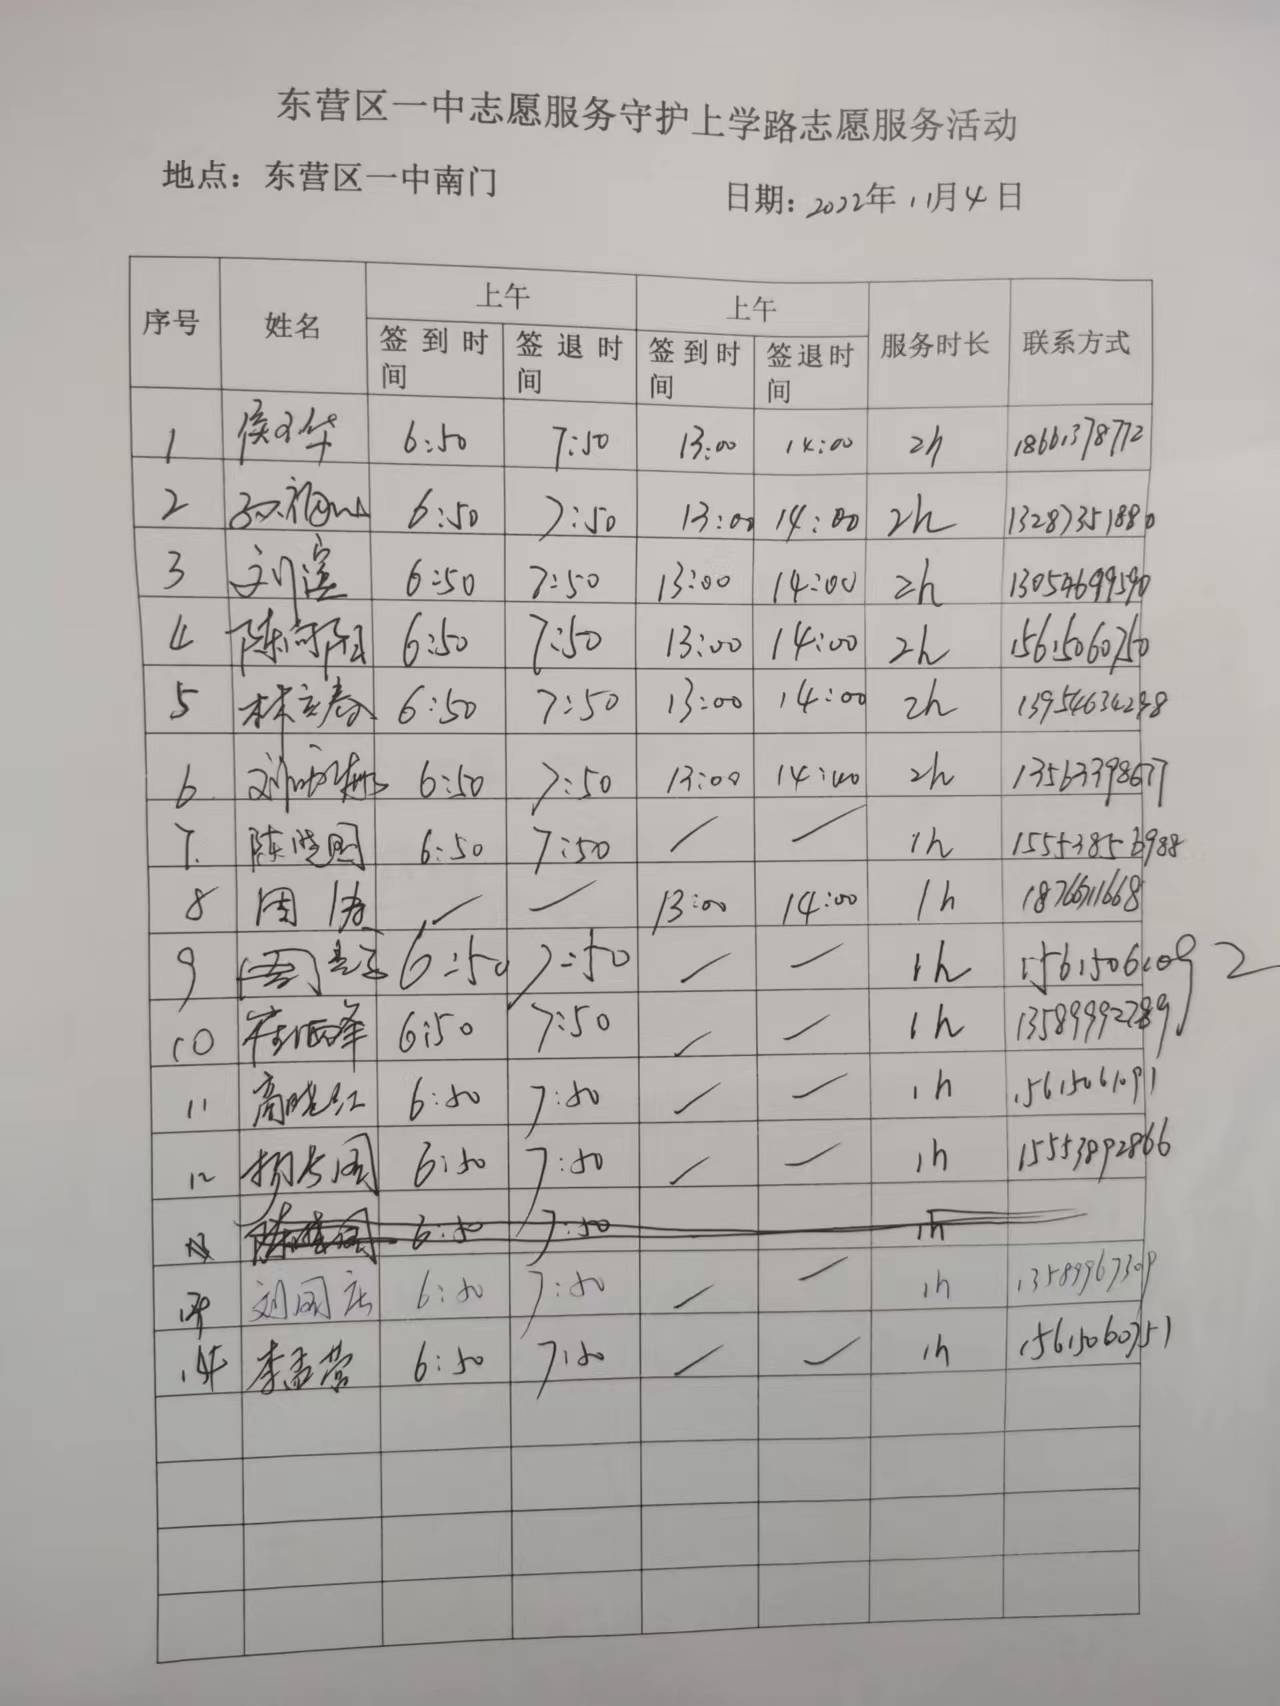 东营区一中志愿服务守护上学路志愿服务活动
地点：东营区一中南门 日期：2022年11月4日
序号 姓名 上午 上午 服务时长 联系方式
签到时间 签退时间 签到时间 签退时间
1 侯 华 6:50 7:50 13:00 14:00 2h 18661378772
2 6:50 7:50 13:00 14:00 2h 13287351880
3 刘滨 6:50 7:50 13:00 14:00 2h 13054699590
4 陈 阳 6:50 7:50 13:00 14:00 2h 15615060750
5 林立春 6:50 7:50 13:00 14:00 2h 13954634298
6 刘 6:50 7:50 13:00 14:00 2h 13563398677
7. 陈晓 6:50 7:50 / / 1h 15553853988
8 周 / / 13:00 14:00 1h
9 6:50 7:50 / / 1h 15615061092
10 崔 峰 6:50 7:50 / / 1h 13589992789
11 高晓红 6:50 7:50 / / 1h 15615061091
12 杨 国 6:50 7:50 / / 1h 15553892866
6:50 7:50 1h
刘国庆 6:50 7:50 / / 1h 13589967309
14 李孟营 6:50 7:50 / / 1h 15615060751